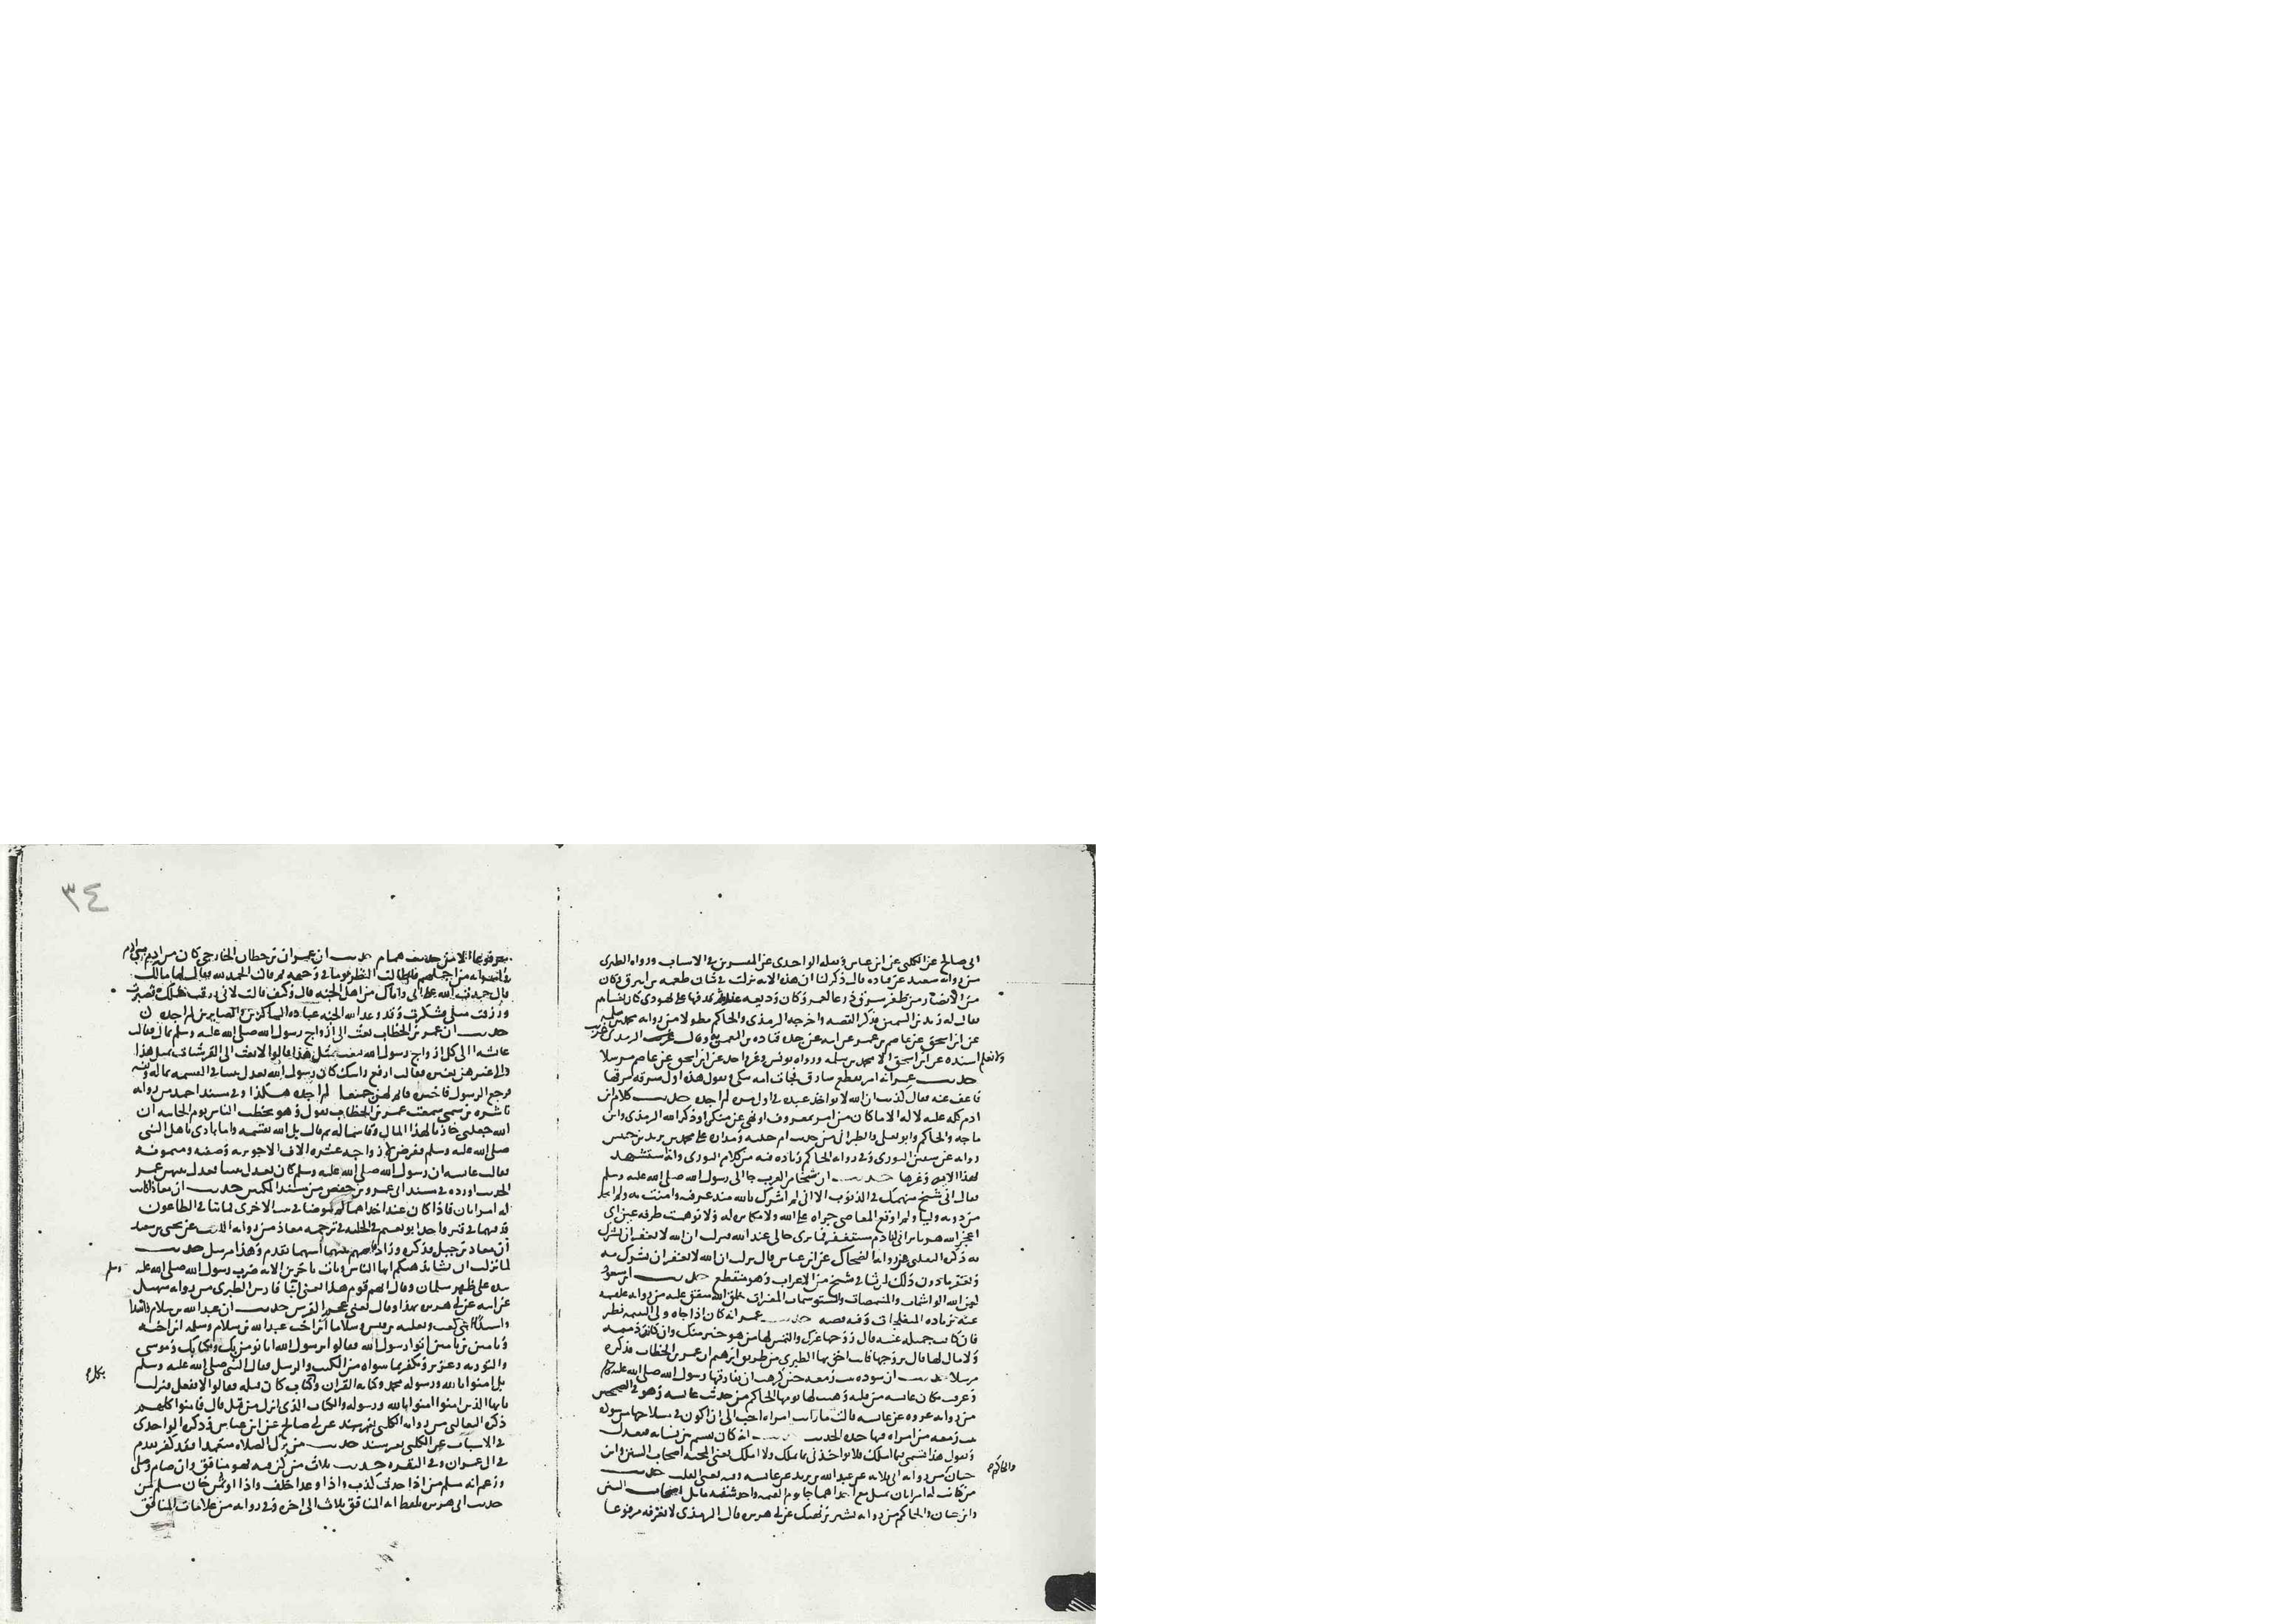 ابى صالح عن الكلبى عن ابن عباس ونقله الواحدى عن المفسرين فى الاسباب ورواه الطبرى
من رواية سعيد عن قتاده قال ذكر لنا ان هذه الايه نزلت فى شان طعمه بن ابيرق وكان
من الانصار من ظفر سرق درعا لعمه وكان وديعه عنده ثم قدفها على يهودى كان يغشاهم
يقال له زيد بن السمين فذكر القصه واخرجه الترمذى والحاكم مطولا من روايه محمد بن سلمه
عن ابن اسحق عن عاصم بن عمر عن ابيه عن جده قتاده بن النعمن وقال الترمذى غريب
ولا نعلم اسنده عن ابن اسحق الا محمد بن سلمه ورواه يونس وغير واحد عن ابن اسحق عن عاصم مرسلا
حديث عمر انه امر بقطع سارق فجات امه تبكى وتقول هذه اول سرقه سرقها
فاعف عنه فقال كذبت ان الله لا يواخذ عبده فى اول مره لم اجده حديث كلام ابن
ادم كله عليه لا له الا ما كان من امر بمعروف او نهى عن منكر او ذكر الله الترمذى وابن
ماجه والحاكم وابو يعلى والطبرانى من حديث ام حبيبه ومداره على محمد بن يزيد بن خنيس
رواه عن سفين الثورى وفى روايه الحاكم زياده فيه من كلام الثورى وانه استشهد
بهذا الايه وغيرها حديث ان شيخا من العرب جا الى رسول الله صلى الله عليه وسلم
فقال انى شيخ منهمك فى الذنوب الا انى لم اشرك بالله منذ عرفته وامنت به ولم اتخذ
من دونه وليا ولم اوقع المعاصى جراه على الله ولا مكابره له ولا توهمت طرفه عين انى
اعجز الله هربا وانى لنادم مستغفر فما ترى حالى عند الله فنزلت ان الله لا يغفر ان يشرك
به ذكره الثعلبى من روايه الضحاك عن ابن عباس قال نزلت ان الله لا يغفر ان يشرك به
ويغفر ما دون ذلك لمن يشا فى شيخ من الاعراب وهو منقطع حديث ابن مسعود
لعن الله الواشمات والمتنمصات والمستوشمات المغيرات خلق الله متفق عليه من روايه علقمه
عنه بزياده المتفلجات وفيه قصه حديث عمر انه كان اذا جاه ولى اليتيمه نظر
فان كانت جميله غنيه قال زوجها غيرك والتمس لها من هو خير منك وان كانت دميمه
ولا مال لها قال تزوجها فانت احق بها الطبرى من طريق ابرهيم ان عمر بن الخطاب فذكره
مرسلا حديث ان سوده بنت زمعه حين كرهت ان يفارقها رسول الله صلى الله عليه وسلم
وعرفت مكان عائشه من قلبه وهبت لها يومها الحاكم من حديث عائشه وهو فى الصحيحين
من روايه عروه عن عائشه قالت ما رايت امراه احب الى ان اكون فى مسلاخها من سوده
بنت زمعه من امراه فيها حده الحديث حديث انه كان يقسم بين نسائه فيعدل
ويقول هذا قسمى فيما املك فلا تواخذنى بما تملك ولا املك يعنى المحبه اصحاب السنن وابن
حبان من روايه ابى قلابه عن عبد الله بن يزيد عن عائشه وفيه يعنى القلب حديث
والحاكم
من كانت له امراتان يميل مع احداهما جا يوم القيمه واحد شقيه مائل اصحاب السنن
وابن حبان والحاكم من روايه بشير بن نهيك عن ابى هريره قال الترمذى لا نعرفه مرفوعا
٣٤
الا من حديث همام حديث ان عمران بن حطان الخارجى كان من ادم بنى ادم
وامراته من اجملهم فاطالت النظر يوما فى وجهه ثم قالت الحمد لله فقال لها مالك
قال حمدت الله على انى واياك من اهل الجنه قال وكيف قالت لانك رزقت مثلى فشكرت
ورزقت مثلك فصبرت وقد وعد الله الجنه عباده الشاكرين والصابرين لم اجده
حديث ان عمر بن الخطاب بعث الى ازواج رسول الله صلى الله عليه وسلم بمال فقالت
عائشه الى كل ازواج رسول الله بعث بمثل هذا قالوا لا بعث الى القرشيات بمثل هذا
والى غيرهن بغيره فقالت ارفع راسك كان رسول الله يعدل بيننا فى القسمه بماله ونفسه
فرجع الرسول فاخبره فاتم لهن جميعا لم اجده هكذا وفى مسند احمد من روايه
ناشره بن سمى سمعت عمر بن الخطاب يقول وهو يخطب الناس يوم الجابيه ان
الله جعلنى خازنا لهذا المال وقاسما له ثم قال بل الله يقسمه وانا بادى باهل النبى
صلى الله عليه وسلم ففرض لازواجه عشره الاف الا جويريه وصفيه وميمونه
فقالت عائشه ان رسول الله صلى الله عليه وسلم كان يعدل بيننا فعدل بينهن عمر
الحديث اورده فى مسند ابى عمرو بن حفص من مسند المكيين حديث ان معاذا كانت
له امراتان فاذا كان عند احداهما لم يتوضا فى بيت الاخرى فماتتا فى الطاعون
فدفنهما فى قبر واحد ابو نعيم فى الحليه فى ترجمه معاذ من روايه الليث عن يحيى بن سعيد
ان معاذ بن جبل فذكره وزاد فاسهم بينهما ايهما تقدم وهذا مرسل حديث
لما نزلت ان يشا يذهبكم ايها الناس ويات باخرين الايه ضرب رسول الله صلى الله عليه وسلم
يده على ظهر سلمان وقال انهم قوم هذا يعنى ابنا فارس الطبرى من روايه سهيل
عن ابيه عن ابى هريره بهذا وقال يعنى عجم الفرس حديث ان عبد الله بن سلام واسدا
واسيدا ابنى كعب وثعلبه بن قيس وسلاما ابن اخت عبد الله بن سلام وسلمه ابن اخيه
ويامين بن يامين اتوا رسول الله فقالوا يا رسول الله انا نومن بك وبكتابك وموسى
والتوريه وعزير ونكفر بما سواه من الكتب والرسل فقال النبى صلى الله عليه وسلم
بل امنوا بالله ورسوله محمد وكتابه القران وبكل كتاب كان قبله فقالوا لا نفعل فنزلت
يايها الذين امنوا امنوا بالله ورسوله والكتاب الذى انزل من قبل قال فامنوا كلهم
ذكره الثعالبى من روايه الكلبى بغير سند عن ابى صالح عن ابن عباس وذكره الواحدى
فى الاسباب عن الكلبى بغير سند حديث من ترك الصلاه متعمدا فقد كفر تقدم
فى ال عمران وفى البقره حديث ثلاث من كن فيه فهو منافق وان صام وصلى
وزعم انه مسلم من اذا حدث كذب واذا وعد اخلف واذا اوتمن خان مسلم من
حديث ابى هريره بلفظ ايه المنافق ثلاث الى اخره وفى روايه من علامات المنافق